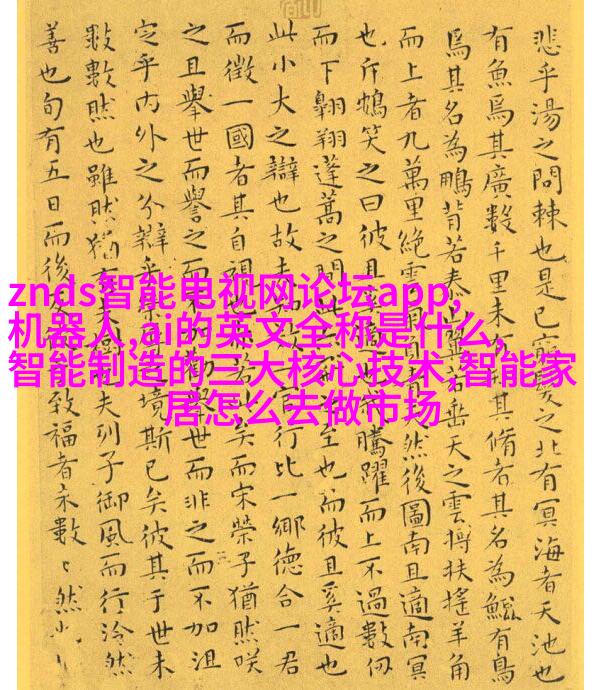 悲乎湯之問棘也是已窮髮之北有冥海者天池也
有魚焉其廣數千里未有其脩者其名為鯤有鳥
焉其名為鵬背若泰山翼若垂天之雲摶扶搖羊角
而上者九萬里絕雲氣青天然後圖南且適南冥
也斥鴳笑之曰彼且奚適也我騰躍而上不過數仞
而下翱翔蓬蒿之間此亦飛之至也而彼且奚適也
此小大之辯也故夫官行比一鄉德合一君
而徵一國者其自視也矣而宋榮子猶然咲
之且舉世而譽之而加勸舉世而非之而不加沮
定乎內外之分辯乎榮之境斯已矣彼其于世未
數數然也雖然猶有未樹夫列子御風而行泠然
善也旬有五日而後反致福者未數〻然也
znds智能电视网论坛app,
机器人,ai的英文全称是什么,
智能制造的三大核心技术 智能家
居怎么去做市场